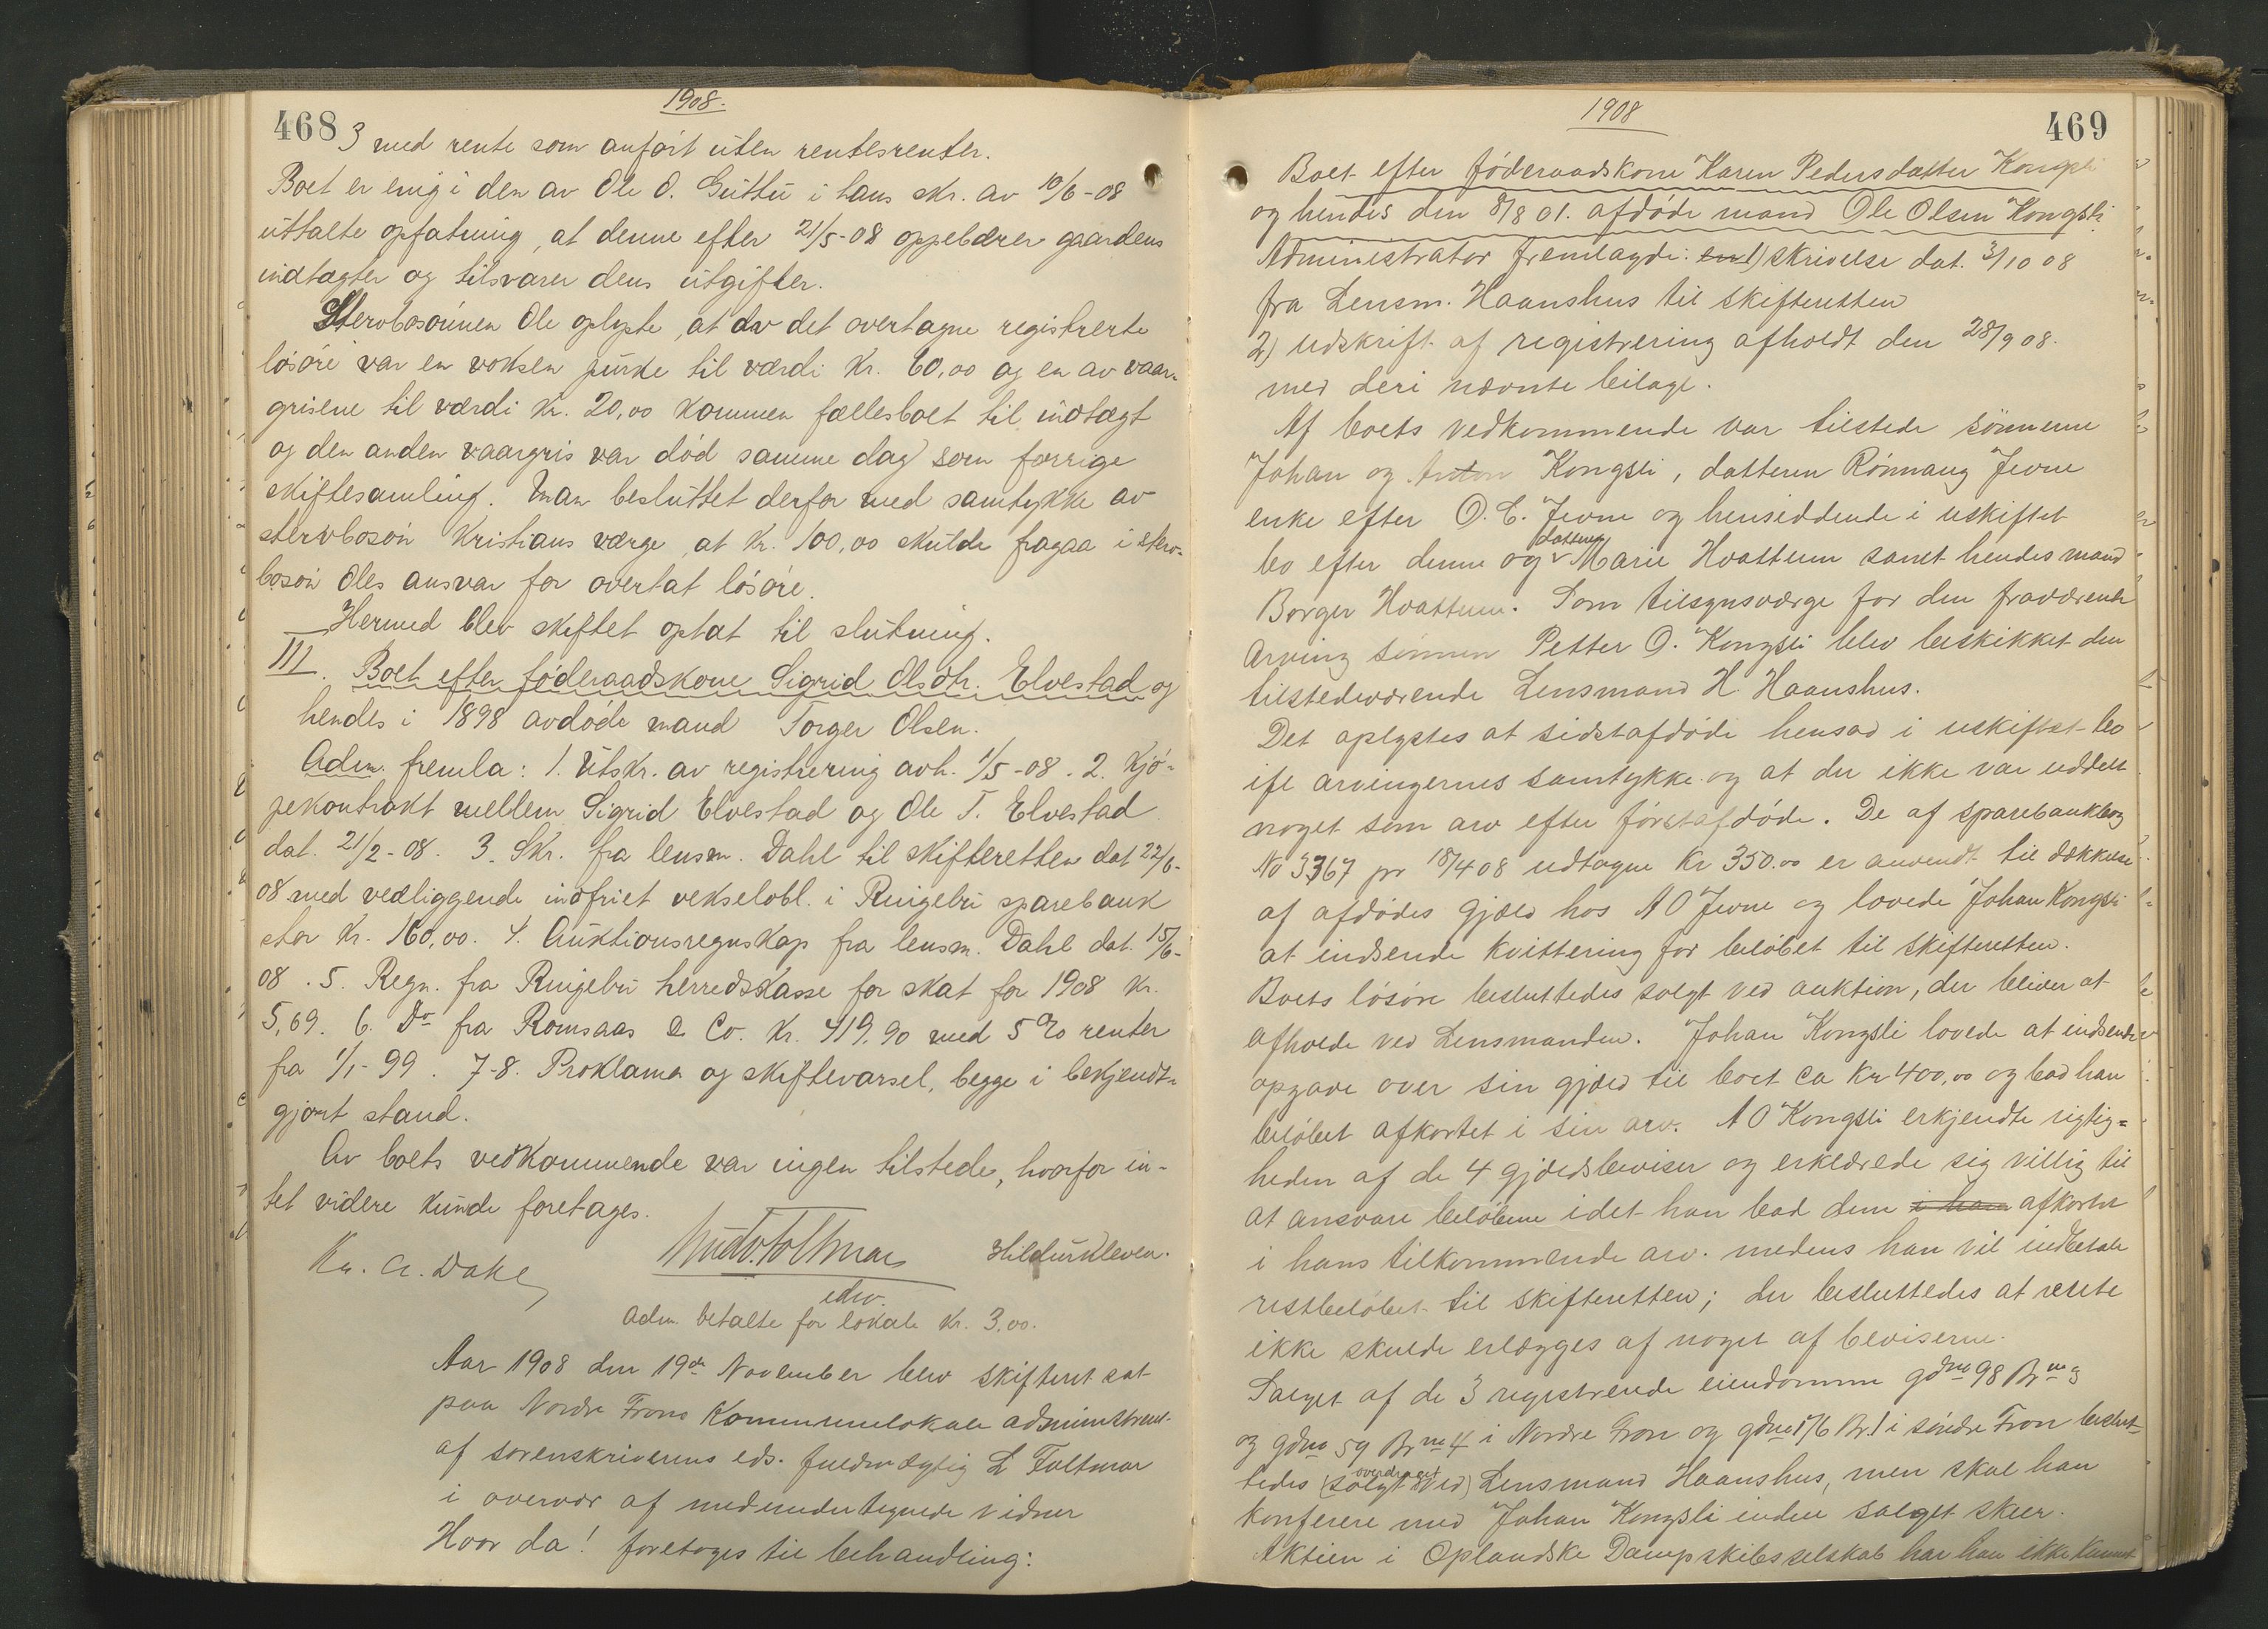 1908.
468
3 med rente som anført uten rentesrenter.
Boet er enig i den av Ole O. Guttu i hans skr. av 10/6-08
uttalte opfatning, at denne efter 21/5-08 oppebærer gaardens
indtægter og tilsvarer dens utgifter.
Stervbosønnen Ole oplyste, at av det overtagne registrerte
løsøre var en voksen purke til værdi kr. 60,00 og en av vaar-
grisene til værdi kr. 20,00 kommen fællesboet til indtægt
og den anden vaargris var død samme dag som forrige
skiftesamling. Man besluttet derfor med samtykke av
stervbosøn Kristians værge, at kr. 100,00 skulde fragaa i sterv-
bosøn Oles ansvar for overtat løsøre.
Hermed blev skiftet optat til slutning.
III. Boet efter føderaadskone Sigrid Olsdtr. Elvestad og
hendes i 1898 avdøde mand Torger Olsen.
Adm. fremla: 1. Utskr. av registrering avh. 1/5-08. 2. Kjø-
pekontrakt mellem Sigrid Elvestad og Ole T. Elvestad
dat. 21/2-08. 3. Skr. fra lensm. Dahl til skifteretten dat 22/6-
08 med vedliggende indfriet vekselobl. i Ringebu sparebank
stor kr. 160,00. 4. Auktionsregnskap fra lensm. Dahl dat. 15/6-
08. 5. Regn. fra Ringebu herredskasse for skat for 1908 kr.
5,69. 6. Do fra Romsaas & Co. kr. 419,90 med 5 % renter
fra 1/1-99. 7-8. Proklama og skiftevarsel, begge i bekjendt-
gjort stand.
Av boets vedkommende var ingen tilstede, hvorfor in-
tet videre kunde foretages.
Kr. A. Dahl
edsv.
Adm. betalte for lokale kr. 3,00.
Aar 1908 den 19de November blev skifteret sat
paa Nordre Frons Kommunelokale administreret
af sorenskriverens eds. fuldmægtig L Foltmar
i overvær af medundertegnede vidner
Hvor da! foretoges til behandling:
1908
469
Boet efter føderaadskone Karen Pedersdatter Kongsli
og hendes den 8/8 01. afdøde mand Ole Olsen Kongsli.
Administrator fremlagde: en 1) skrivelse dat. 3/10 08
fra Lensm. Haanshus til skifteretten
2) udskrift af registrering afholdt den 28/9 08.
med deri nævnte bilage.
Af boets vedkommende var tilstede sønnerne
Johan og Anton Kongsli, datteren Rønnaug Jevne
enke efter O. C. Jevne og hensiddende i uskiftet
bo efter denne og datteren Marie Hvattum samt hendes mand
Borger Hvattum. Som tilsynsværge for den fraværende
arving sønnen Petter O. Kongsli blev beskikket den
tilstedeværende Lensmand H. Haanshus.
Det oplystes at sidstafdøde hensad i uskiftet bo
ifl arvingernes samtykke og at der ikke var uddelt
noget som arv efter førstafdøde. De af sparebankbog
No 3367 pr 18/4 08 udtagne kr 350.00 er anvendt til dækkelse
af afdødes gjæld hos A O Jevne og lovede Johan Kongsli
at indsende kvittering for beløbet til skifteretten.
Boets løsøre besluttedes solgt ved auktion, der bliver at
afholde ved Lensmanden. Johan Kongsli lovede at indsende
opgave over sin gjæld til boet ca kr 400,00 og bad han
beløbet afkortet i sin arv. A O Kongsli erkjendte rigtig=
heden af de 4 gjældsbeviser og erklærede sig villig til
at ansvare beløbene idet han bad dem i hans afkortet
i hans tilkommende arv. medens han vil indbetale
restbeløbet til skifteretten; der besluttedes at rente
ikke skulde erlægges af noget af beviserne.
Salget af de 3 registrerede eiendomme gdno 98 Brno 3
og gdno 59 Brno 4 i Nordre Fron og gdno 176 Br. 1 i søndre Fron beslut-
tedes (solgt ved) overdraget Lensmand Haanshus, men skal han
konferere med Johan Kongsli inden salget skeer.
Aktien i Oplandske Dampskibsselskab har han ikke kunnet